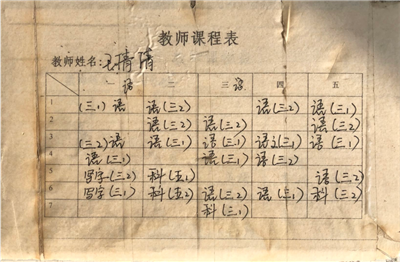 教师课程表
教师姓名: 王倩倩
语 三 语 四 五
1 (三1) 语 语(三2) 语(三2) 语(三1)
语(三2) 语(三2) 语(三2)
3 (三2)语 语(三1) 语(三1) 语(三1) 语(三1)
4 语(三1) 语(三1) 语(三2)
5 写字(三2) 科(五1) 语(三2)
6 写字(三1) 科(五2) 语(三2) 语(三1) 科(三2)
7 科(三1)